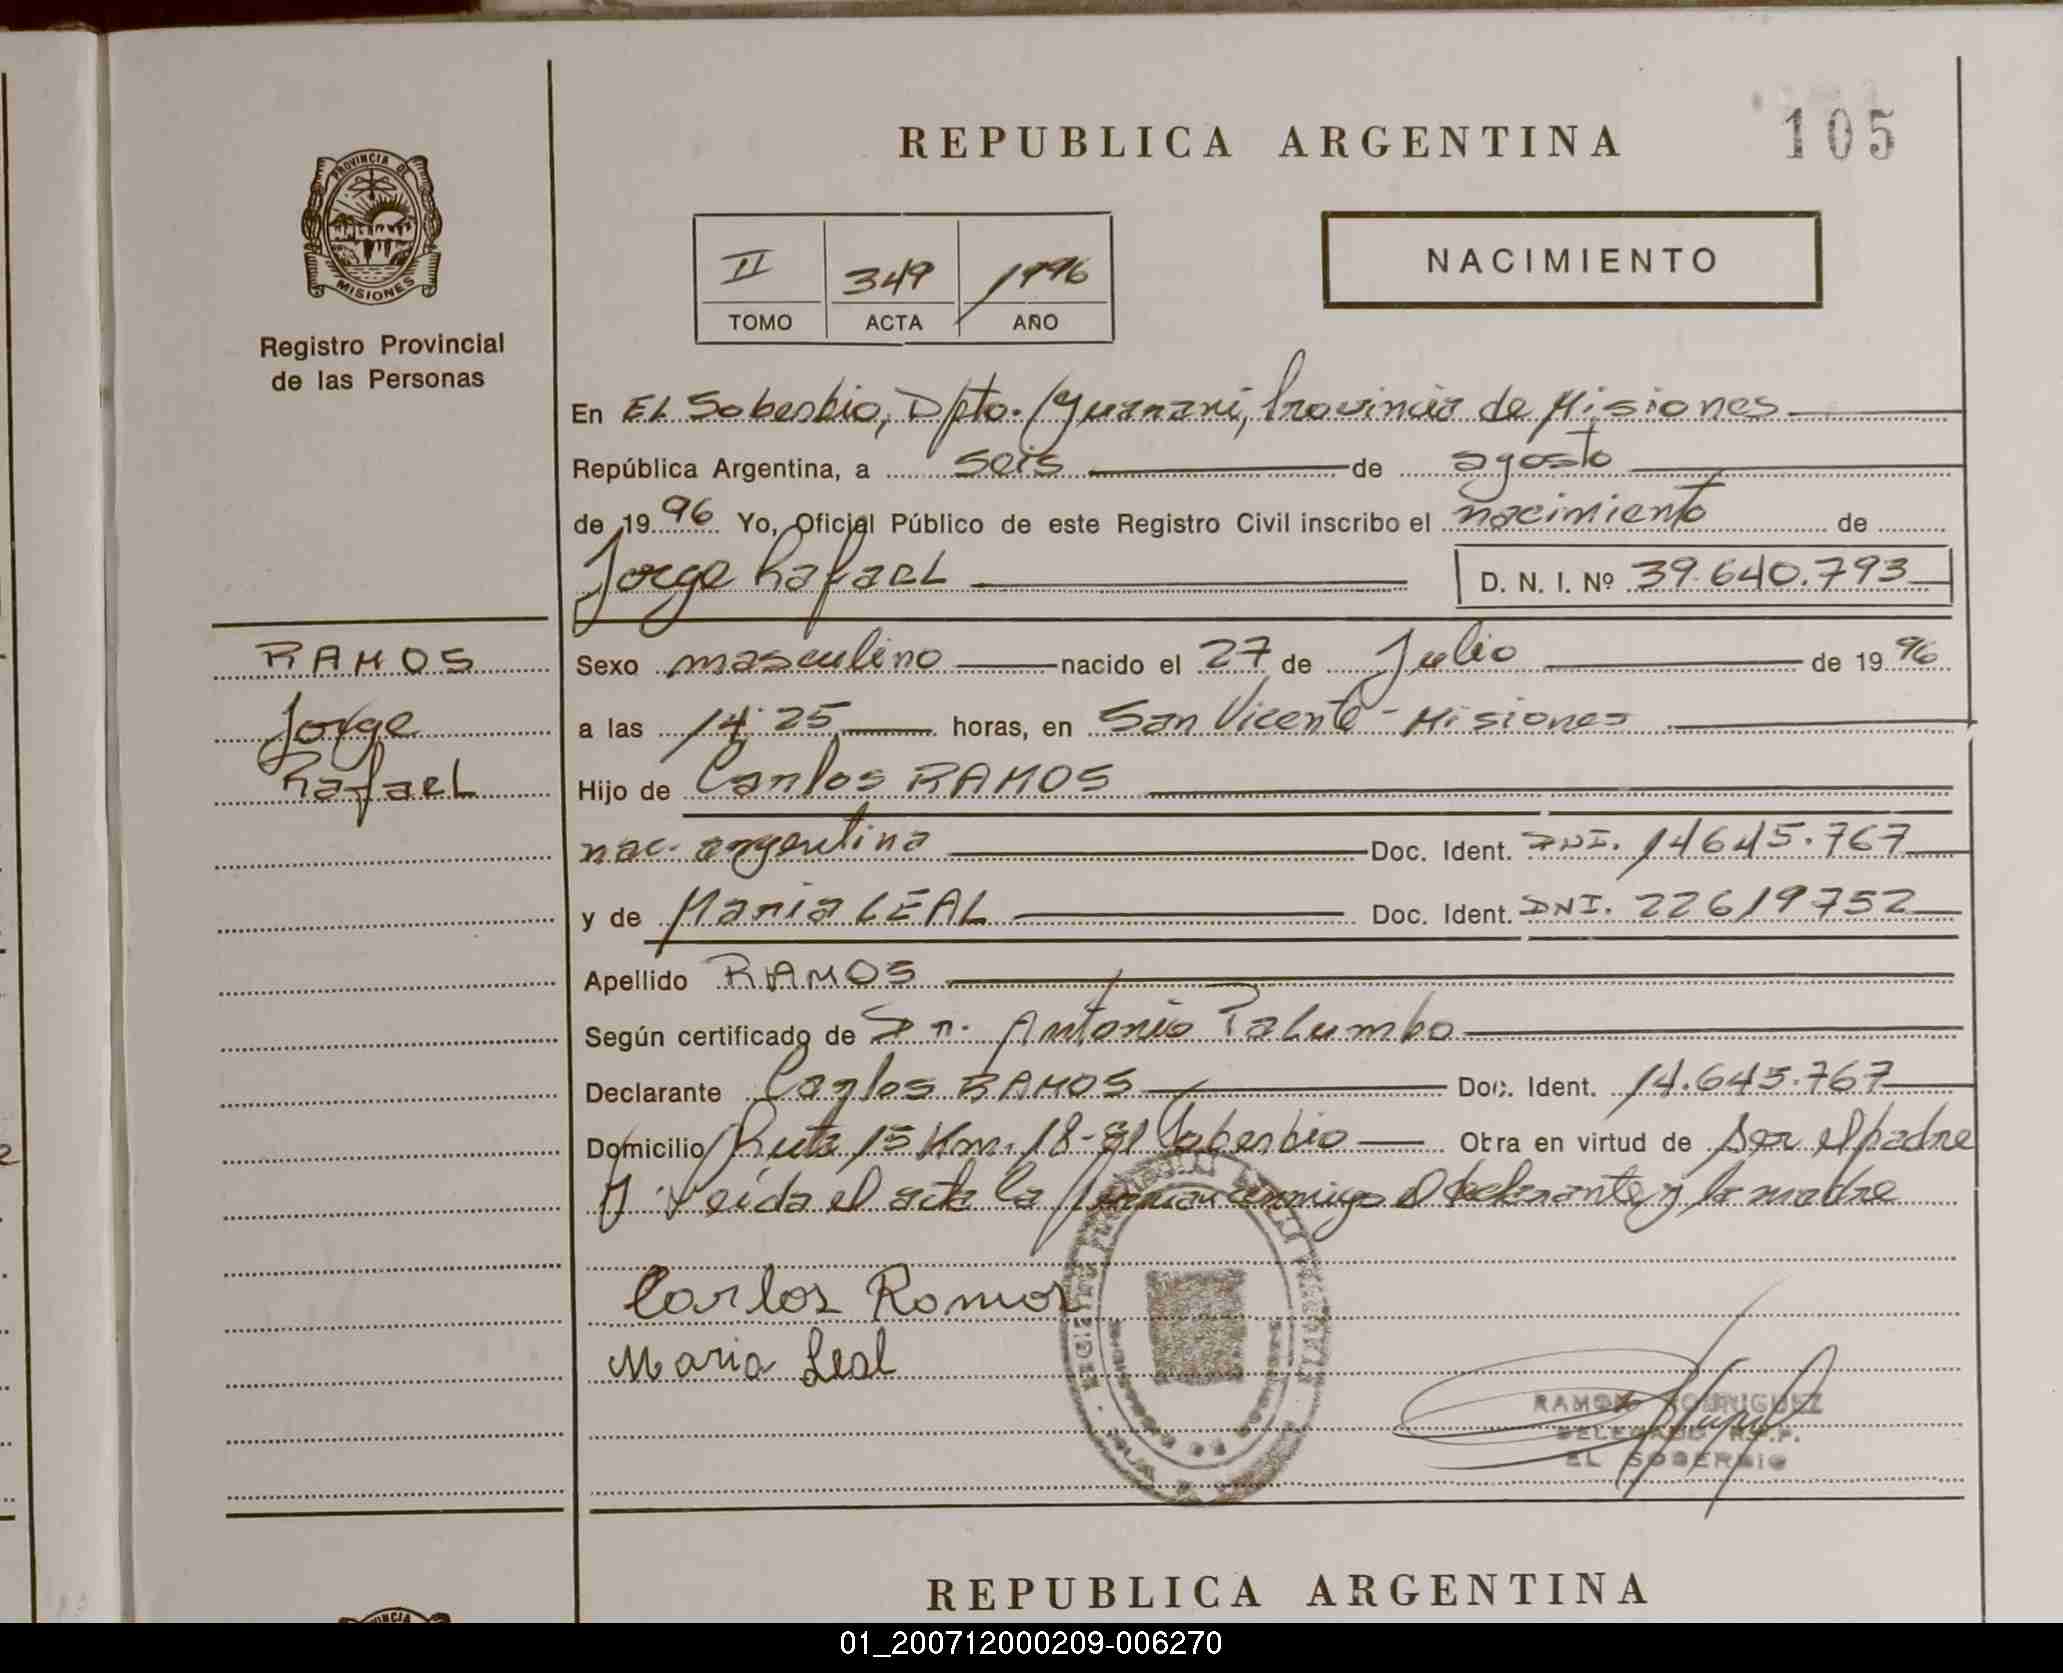 REPUBLICA ARGENTINA
105
PROVINCIA DE
MISIONES
Registro Provincial
de las Personas
II 349 1996
TOMO ACTA AÑO
NACIMIENTO
En EL Soberbio, Dpto. Guarani, Provincia de Misiones
República Argentina, a seis de agosto
de 1996 Yo, Oficial Público de este Registro Civil inscribo el nacimiento de
Jorge Rafael D. N. I. Nº 39.640.793
RAMOS
Jorge
Rafael
Sexo masculino nacido el 27 de Julio de 1996
a las 14:25 horas, en San Vicente - Misiones
Hijo de Carlos RAMOS
nac. argentina Doc. Ident. DNI. 14645.767
y de Maria LEAL Doc. Ident. DNI. 22619752
Apellido RAMOS
Según certificado de Dr. Antonio Palumbo
Declarante Carlos RAMOS Doc. Ident. 14.645.767
Domicilio Ruta 15 Km. 18 - El Soberbio Obra en virtud de ser el padre
Leída el acta la firman conmigo el declarante y la madre
Carlos Ramos
Maria Leal
RAMON RODRIGUEZ
DELEGADO R.P.P.
EL SOBERBIO
REPUBLICA ARGENTINA
01_200712000209-006270